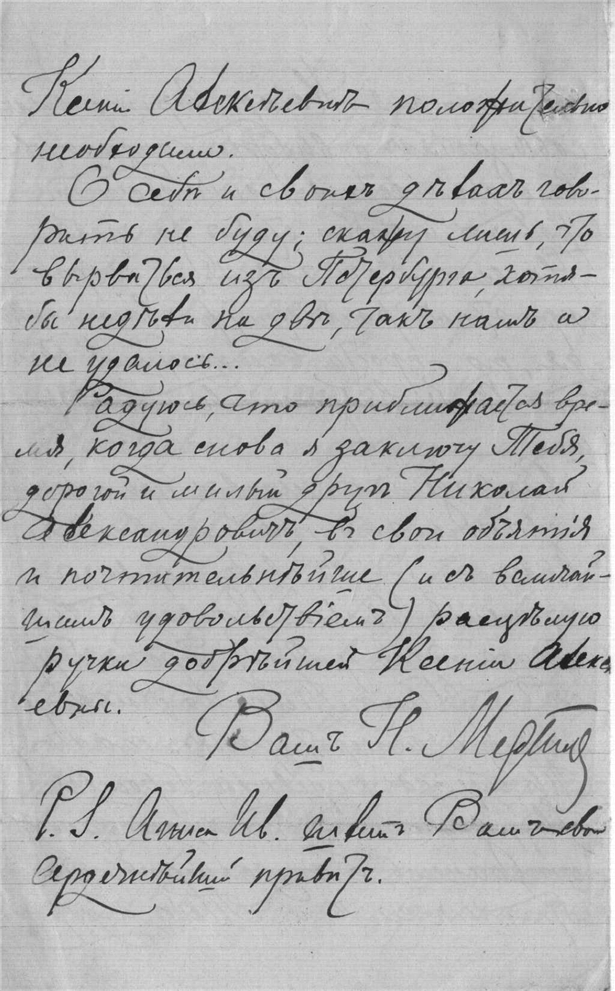 Ксеніи Алексѣевнѣ положительно
необходимо.
О себѣ и своихъ дѣлахъ гово-
рить не буду; скажу лишь, что
вырваться изъ Петербурга, хотя-
бы недѣли на двѣ, такъ намъ и
не удалось...
Радуюсь, что приближается вре-
мя, когда снова я заключу Тебя,
дорогой и милый другъ Николай
Александровичъ, въ свои объятія
и почтительнѣйше (и съ величай-
шимъ удовольствіемъ) расцѣлую
ручки добрѣйшей Ксеніи Алекс
евны.
Вашъ Н.
P.S. Анна Ив. шлетъ Вамъ свой
сердечнѣйшій привѣтъ.